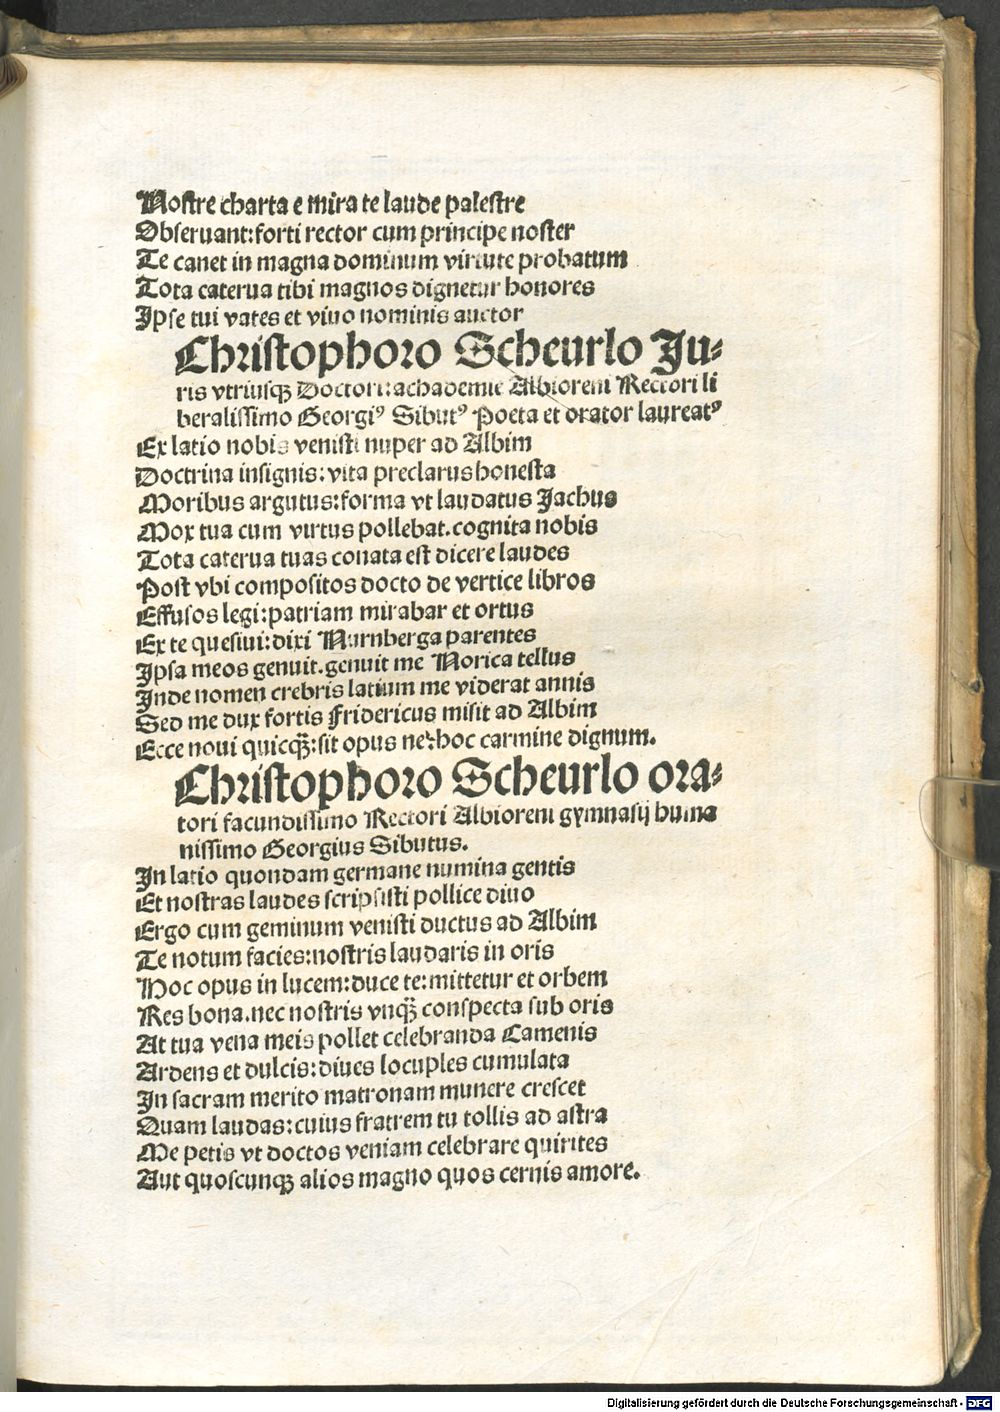 Nostre charta e mira te laude palestre
Obseruant:forti rector cum principe noster
Te canet in magna dominum virtute probatum
Tota caterua tibi magnos dignetur honores
Ipse tui vates et viuo nominis auctor
Christophoro Scheurlo Ju⸗
ris vtriusqꝫ Doctori:achademie Albioreni Rectori li
beralissimo Georgiꝰ Sibutꝰ Poeta et orator laureatꝰ
Ex latio nobis venisti nuper ad Albim
Doctrina insignis:vita preclarus honesta
Moribus argutus:forma vt laudatus Jachus
Mox tua cum virtus pollebat.cognita nobis
Tota caterua tuas conata est dicere laudes
Post vbi compositos docto de vertice libros
Effusos legi:patriam mirabar et ortus
Ex te quesiui:dixi Nurnberga parentes
Ipsa meos genuit.genuit me Norica tellus
Inde nomen crebris latium me viderat annis
Sed me dux fortis Fridericus misit ad Albim
Ecce noui quicqꝫ̃:sit opus ne:hoc carmine dignum.
Christophoro Scheurlo ora⸗
tori facundissimo Rectori Albioreni gymnasij huma
nissimo Georgius Sibutus.
In latio quondam germane numina gentis
Et nostras laudes scripsisti pollice diuo
Ergo cum geminum venisti ductus ad Albim
Te notum facies:nostris laudaris in oris
Hoc opus in lucem:duce te:mittetur et orbem
Res bona.nec nostris vnqꝫ̃ conspecta sub oris
At tua vena meis pollet celebranda Camenis
Ardens et dulcis:diues locuples cumulata
In sacram merito matronam munere crescet
Quam laudas:cuius fratrem tu tollis ad astra
Me petis vt doctos veniam celebrare quirites
Aut quoscunqꝫ alios magno quos cernis amore.
Digitalisierung gefördert durch die Deutsche Forschungsgemeinschaft - DFG